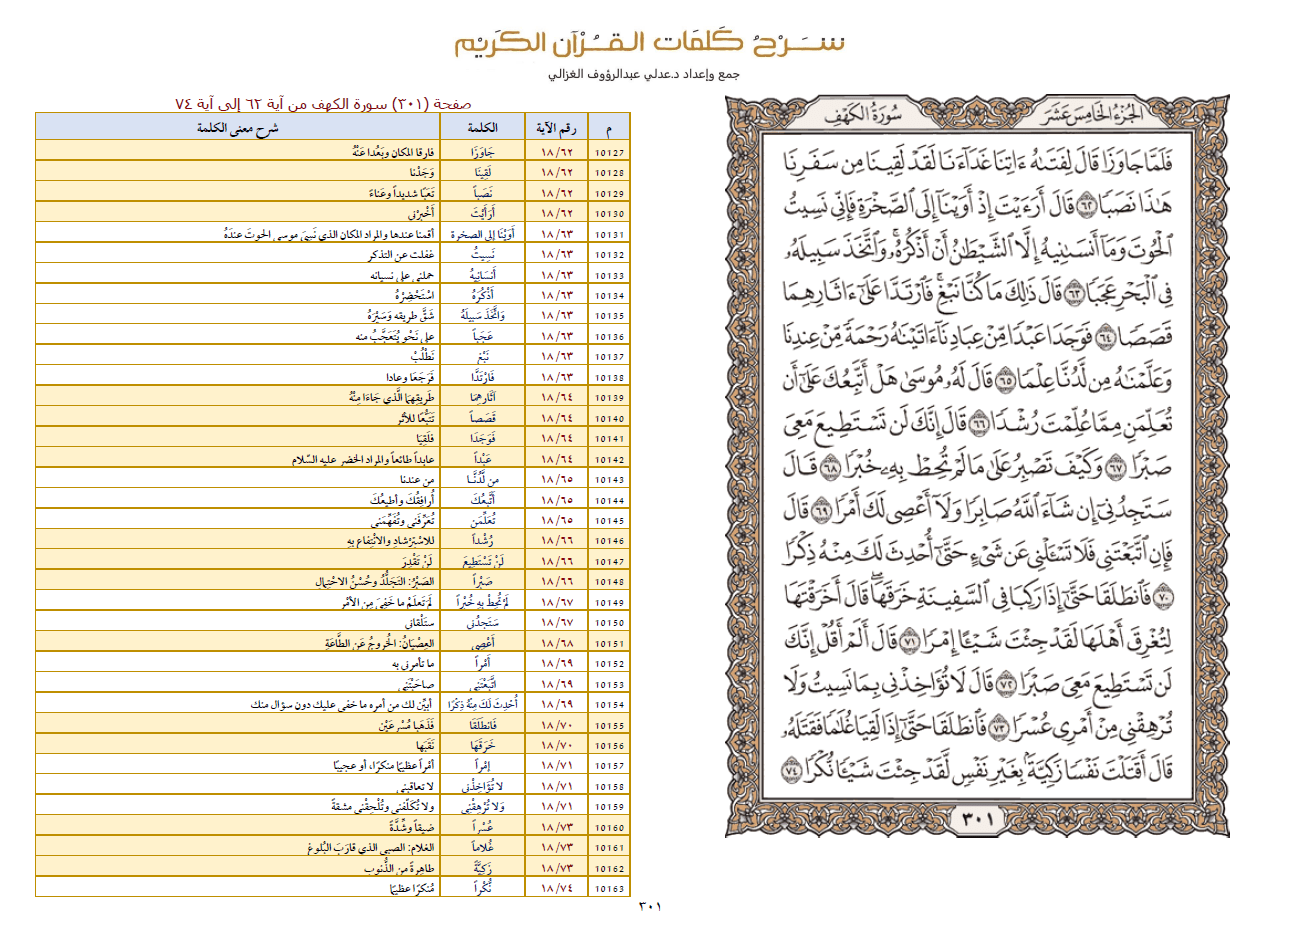 شرح كلمات القرآن الكريم
جمع وإعداد د.عدلي عبدالرؤوف الغزالي
الجزء الخامس عشر
سورة الكهف
فَلَمَّا جَاوَزَا قَالَ لِفَتَىٰهُ ءَاتِنَا غَدَآءَنَا لَقَدْ لَقِينَا مِن سَفَرِنَا
هَٰذَا نَصَبًا ٦٢ قَالَ أَرَءَيْتَ إِذْ أَوَيْنَآ إِلَى ٱلصَّخْرَةِ فَإِنِّى نَسِيتُ
ٱلْحُوتَ وَمَآ أَنسَىٰنِيهُ إِلَّا ٱلشَّيْطَٰنُ أَنْ أَذْكُرَهُۥ ۚ وَٱتَّخَذَ سَبِيلَهُۥ
فِى ٱلْبَحْرِ عَجَبًا ٦٣ قَالَ ذَٰلِكَ مَا كُنَّا نَبْغِ ۚ فَٱرْتَدَّا عَلَىٰٓ ءَاثَارِهِمَا
قَصَصًا ٦٤ فَوَجَدَا عَبْدًا مِّنْ عِبَادِنَآ ءَاتَيْنَٰهُ رَحْمَةً مِّنْ عِندِنَا
وَعَلَّمْنَٰهُ مِن لَّدُنَّا عِلْمًا ٦٥ قَالَ لَهُۥ مُوسَىٰ هَلْ أَتَّبِعُكَ عَلَىٰٓ أَن
تُعَلِّمَنِ مِمَّا عُلِّمْتَ رُشْدًا ٦٦ قَالَ إِنَّكَ لَن تَسْتَطِيعَ مَعِىَ
صَبْرًا ٦٧ وَكَيْفَ تَصْبِرُ عَلَىٰ مَا لَمْ تُحِطْ بِهِۦ خُبْرًا ٦٨ قَالَ
سَتَجِدُنِىٓ إِن شَآءَ ٱللَّهُ صَابِرًا وَلَآ أَعْصِى لَكَ أَمْرًا ٦٩ قَالَ
فَإِنِ ٱتَّبَعْتَنِى فَلَا تَسْـَٔلْنِى عَن شَىْءٍ حَتَّىٰٓ أُحْدِثَ لَكَ مِنْهُ ذِكْرًا
٧٠ فَٱنطَلَقَا حَتَّىٰٓ إِذَا رَكِبَا فِى ٱلسَّفِينَةِ خَرَقَهَا ۖ قَالَ أَخَرَقْتَهَا
لِتُغْرِقَ أَهْلَهَا لَقَدْ جِئْتَ شَيْـًٔا إِمْرًا ٧١ قَالَ أَلَمْ أَقُلْ إِنَّكَ
لَن تَسْتَطِيعَ مَعِىَ صَبْرًا ٧٢ قَالَ لَا تُؤَاخِذْنِى بِمَا نَسِيتُ وَلَا
تُرْهِقْنِى مِنْ أَمْرِى عُسْرًا ٧٣ فَٱنطَلَقَا حَتَّىٰٓ إِذَا لَقِيَا غُلَٰمًا فَقَتَلَهُۥ
قَالَ أَقَتَلْتَ نَفْسًا زَكِيَّةًۢ بِغَيْرِ نَفْسٍ لَّقَدْ جِئْتَ شَيْـًٔا نُّكْرًا ٧٤
٣٠١
صفحة (٣٠١) سورة الكهف من آية ٦٢ إلى آية ٧٤
م رقم الآية الكلمة شرح معنى الكلمة
10127 ١٨/٦٢ جَاوَزَا فارقا المكان وبَعُدا عَنْهُ
10128 ١٨/٦٢ لَقِينَا وَجَدْنا
10129 ١٨/٦٢ نَصَباً تَعَبًا شديداً وعَناءً
10130 ١٨/٦٢ أَرَأَيْتَ أَخْبِرْنِي
10131 ١٨/٦٣ أَوَيْنَا إلى الصخرة أقمنا عندها والمراد المكان الذي نَسِيَ موسى الحوتَ عندَهُ
10132 ١٨/٦٣ نَسِيتُ غفلت عن التذكر
10133 ١٨/٦٣ أَنسَانِيهُ حملني على نسيانه
10134 ١٨/٦٣ أَذْكُرَهُ اسْتَحْضِرُهُ
10135 ١٨/٦٣ وَاتَّخَذَ سَبِيلَهُ شَقَّ طريقه وَسَيْرَهُ
10136 ١٨/٦٣ عَجَباً على نَحْوٍ يُتَعَجَّبُ منه
10137 ١٨/٦٣ نَبْغِ نَطْلُبُ
10138 ١٨/٦٣ فَارْتَدَّا فَرَجَعَا وعادا
10139 ١٨/٦٤ آثَارِهِمَا طَرِيقِهِمَا الَّذي جَاءَا مِنْهُ
10140 ١٨/٦٤ قَصَصاً تَتَبُّعًا للأثر
10141 ١٨/٦٤ فَوَجَدَا فلَقِيَا
10142 ١٨/٦٤ عَبْداً عابداً طائعاً والمراد الخضر عليه السّلام
10143 ١٨/٦٥ من لَّدُنَّـا من عندنا
10144 ١٨/٦٥ أَتَّبِعُكَ أُرافِقُكَ وأُطيعُكَ
10145 ١٨/٦٥ تُعَلِّمَنِ تُعَرِّفَنِي وتُفَهِّمَنِي
10146 ١٨/٦٦ رُشْداً للاسْتِرْشادِ والانْتِفاعِ بِهِ
10147 ١٨/٦٦ لَنْ تَسْتَطِيعَ لَنْ تَقْدِرَ
10148 ١٨/٦٦ صَبْراً الصَبْرُ: التَجَلُّدُ وحُسْنُ الاحْتِمالِ
10149 ١٨/٦٧ لَمْ تُحِطْ بِهِ خُبْراً لَمْ تَعلَمْ ما خَفِيَ مِن الأمْرِ
10150 ١٨/٦٧ سَتَجِدُنِي ستَلْقاني
10151 ١٨/٦٨ أَعْصِي العِصْيَانُ: الخُروجُ عَن الطَّاعَةِ
10152 ١٨/٦٩ أَمْراً ما تأمرني به
10153 ١٨/٦٩ اتَّبَعْتَنِي صاحَبْتَنِي
10154 ١٨/٦٩ أُحْدِثَ لَكَ مِنْهُ ذِكْرًا أبيِّن لك من أمره ما خفي عليك دون سؤال منك
10155 ١٨/٧٠ فَانطَلَقَا فَذَهَبا مُسْرِعَيْنِ
10156 ١٨/٧٠ خَرَقَهَا نَقَبَها
10157 ١٨/٧١ إِمْراً أمْراً عظيمًا منكرًا، أو عجيبًا
10158 ١٨/٧١ لا تُؤَاخِذْنِي لا تعاقبني
10159 ١٨/٧١ وَلا تُرْهِقْنِي ولا تُكَلِّفنِي وتُلْحِقْنِي مشقةً
10160 ١٨/٧٣ عُسْراً ضيقاً وشِدَّةً
10161 ١٨/٧٣ غُلاماً الغلام: الصبي الذي قارَبَ البُلوغ
10162 ١٨/٧٣ زَكِيَّةً طاهِرةً من الذُّنوبِ
10163 ١٨/٧٤ نُّكْراً مُنكرًا عظيمًا
٣٠١